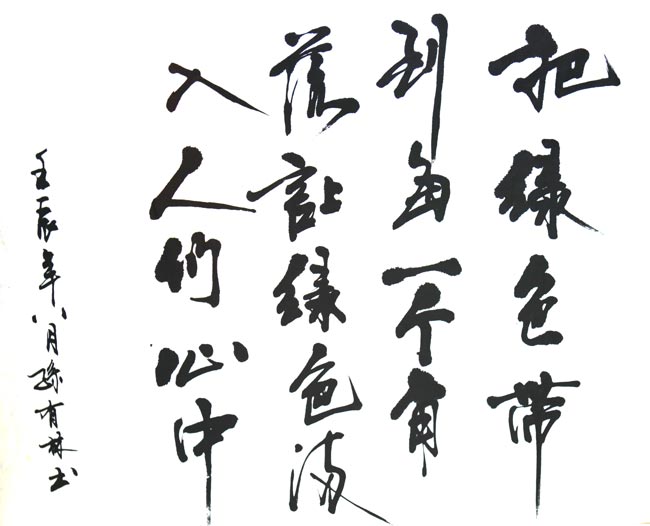 把绿色带
到每一个角
落让绿色深
入人们心中
壬辰年八月孫有林书